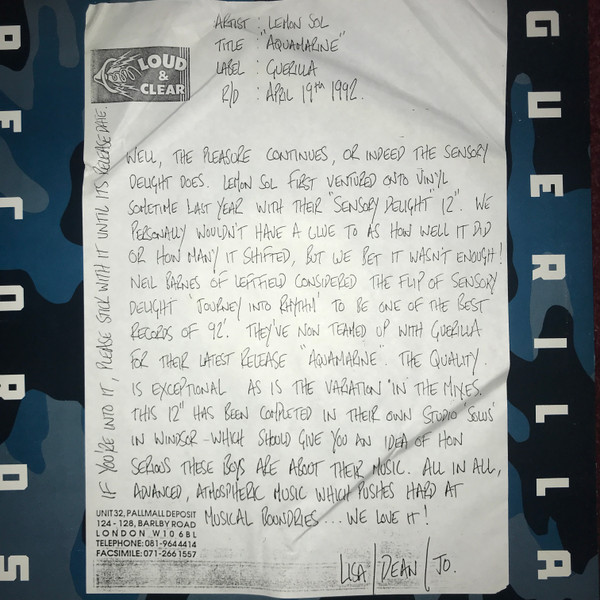 ARTIST : LEMON SOL
TITLE : "AQUAMARINE"
LABEL : GUERILLA
R/D : APRIL 19th 1992.
LOUD
&
CLEAR
WELL, THE PLEASURE CONTINUES, OR INDEED THE SENSORY
DELIGHT DOES. LEMON SOL FIRST VENTURED ONTO VINYL
SOMETIME LAST YEAR WITH THEIR "SENSORY DELIGHT" 12". WE
PERSONALLY WOULDN'T HAVE A CLUE TO AS HOW WELL IT DID
OR HOW MANY IT SHIFTED, BUT WE BET IT WASN'T ENOUGH!
NEIL BARNES OF LEFTFIELD CONSIDERED THE FLIP OF SENSORY
DELIGHT 'JOURNEY INTO RHYTHM' TO BE ONE OF THE BEST
RECORDS OF 92'. THEY'VE NOW TEAMED UP WITH GUERILLA
FOR THEIR LATEST RELEASE "AQUAMARINE". THE QUALITY
IS EXCEPTIONAL AS IS THE VARIATION IN THE MIXES.
THIS 12" HAS BEEN COMPLETED IN THEIR OWN STUDIO 'SOLUS'
IN WINDSOR - WHICH SHOULD GIVE YOU AN IDEA OF HOW
SERIOUS THESE BOYS ARE ABOUT THEIR MUSIC. ALL IN ALL,
ADVANCED, ATMOSPHERIC MUSIC WHICH PUSHES HARD AT
MUSICAL BOUNDRIES... WE LOVE IT!
LISA/DEAN/JO.
IF YOU'RE INTO IT, PLEASE STICK WITH IT UNTIL ITS RELEASE DATE.
UNIT 32, PALLMALL DEPOSIT
124 - 128, BARLBY ROAD
LONDON W10 6BL
TELEPHONE: 081-964 4414
FACSIMILE: 071-266 1557
GUERILLA
RECORDS